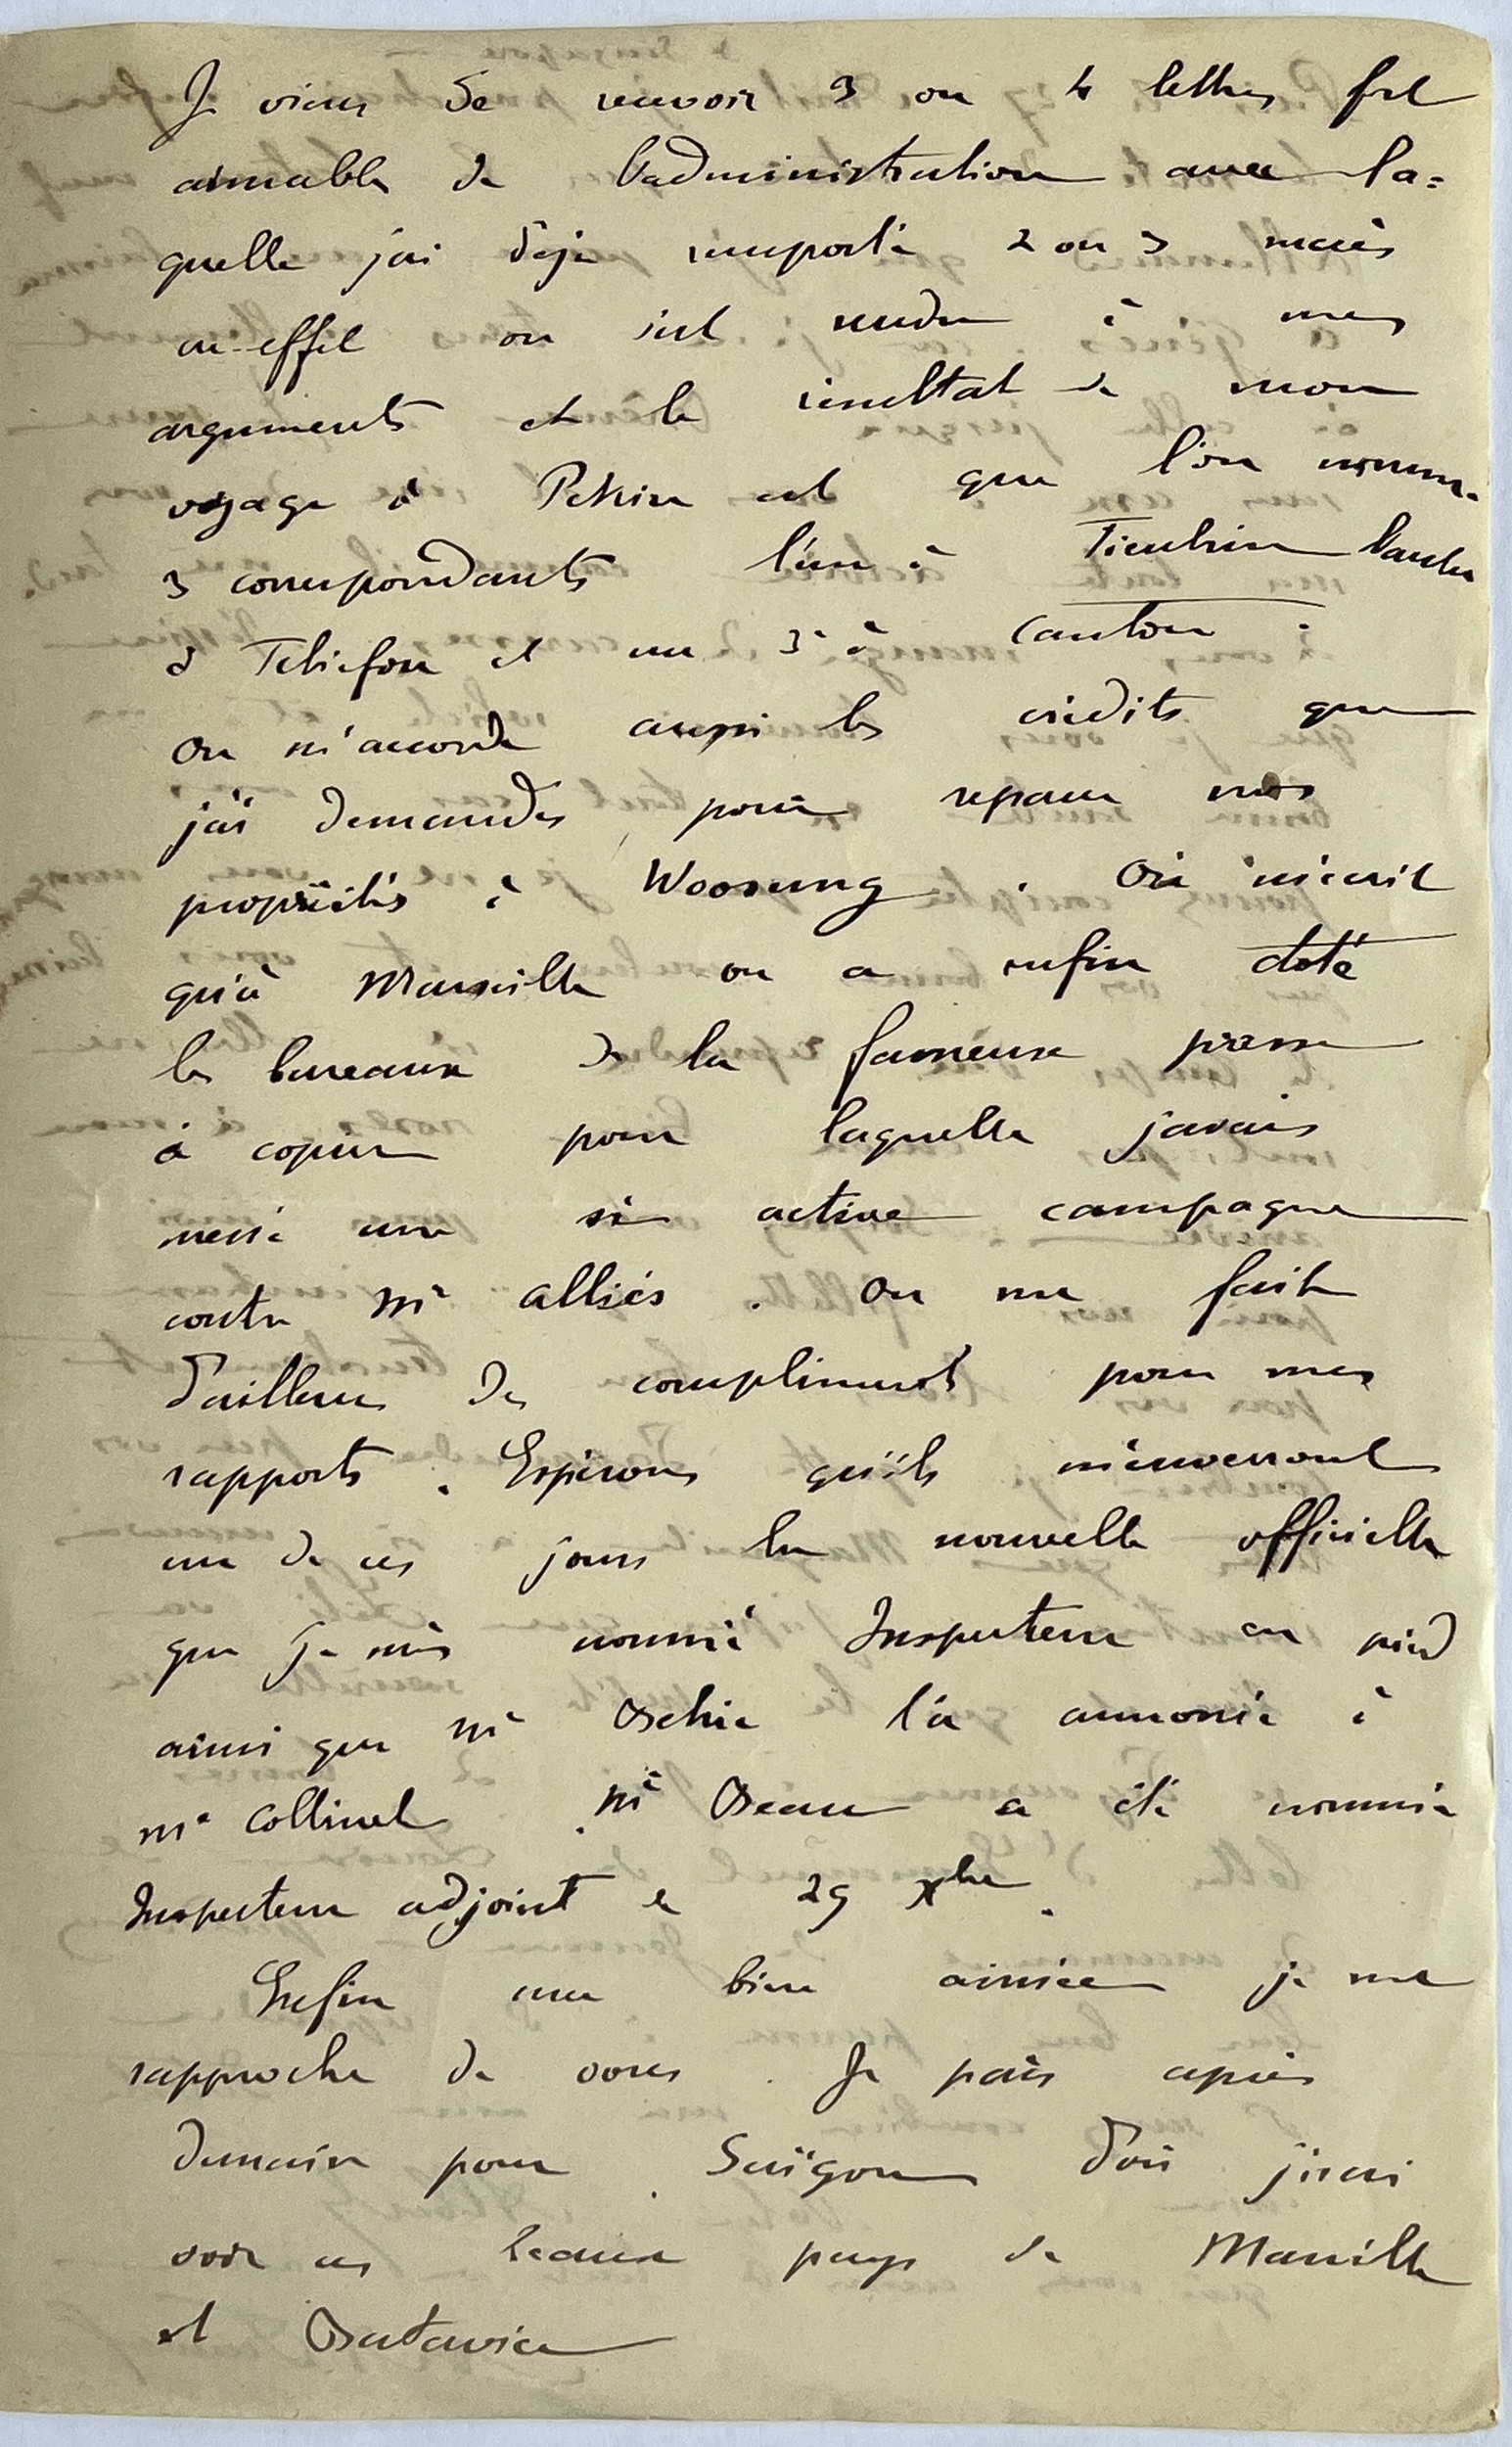 Je viens de recevoir 3 ou 4 lettres fort
aimables de l'administration avec la=
quelle j'ai déjà remporté 2 ou 3 succès
en effet on s'est rendu à mes
arguments et le résultat de mon
voyage à Pekin est que l'on nomme
3 correspondants l'un à Tientsin l'autre
à Tchefou et un 3e à Canton.
On m'accorde aussi les crédits que
j'ai demandés pour réparer nos
propriétés à Woosung. On m'écrit
qu'à Marseille on a enfin doté
les bureaux de la fameuse presse
à copier pour laquelle j'avais
mené une si active campagne
contre Mr Alliès. On me fait
d'ailleurs des compliments pour mes
rapports. Espérons qu'ils m'enverront
un de ces jours la nouvelle officielle
que je suis nommé Inspecteur en pied
ainsi que Mr l'a annoncé à
Mr Collinet. Mr a été nommé
Inspecteur adjoint le 29 Xbre.
Enfin ma bien aimée je me
rapproche de vous. Je pars après
demain pour Saïgon d'où j'irai
voir ces beaux pays de Manille
et Batavia